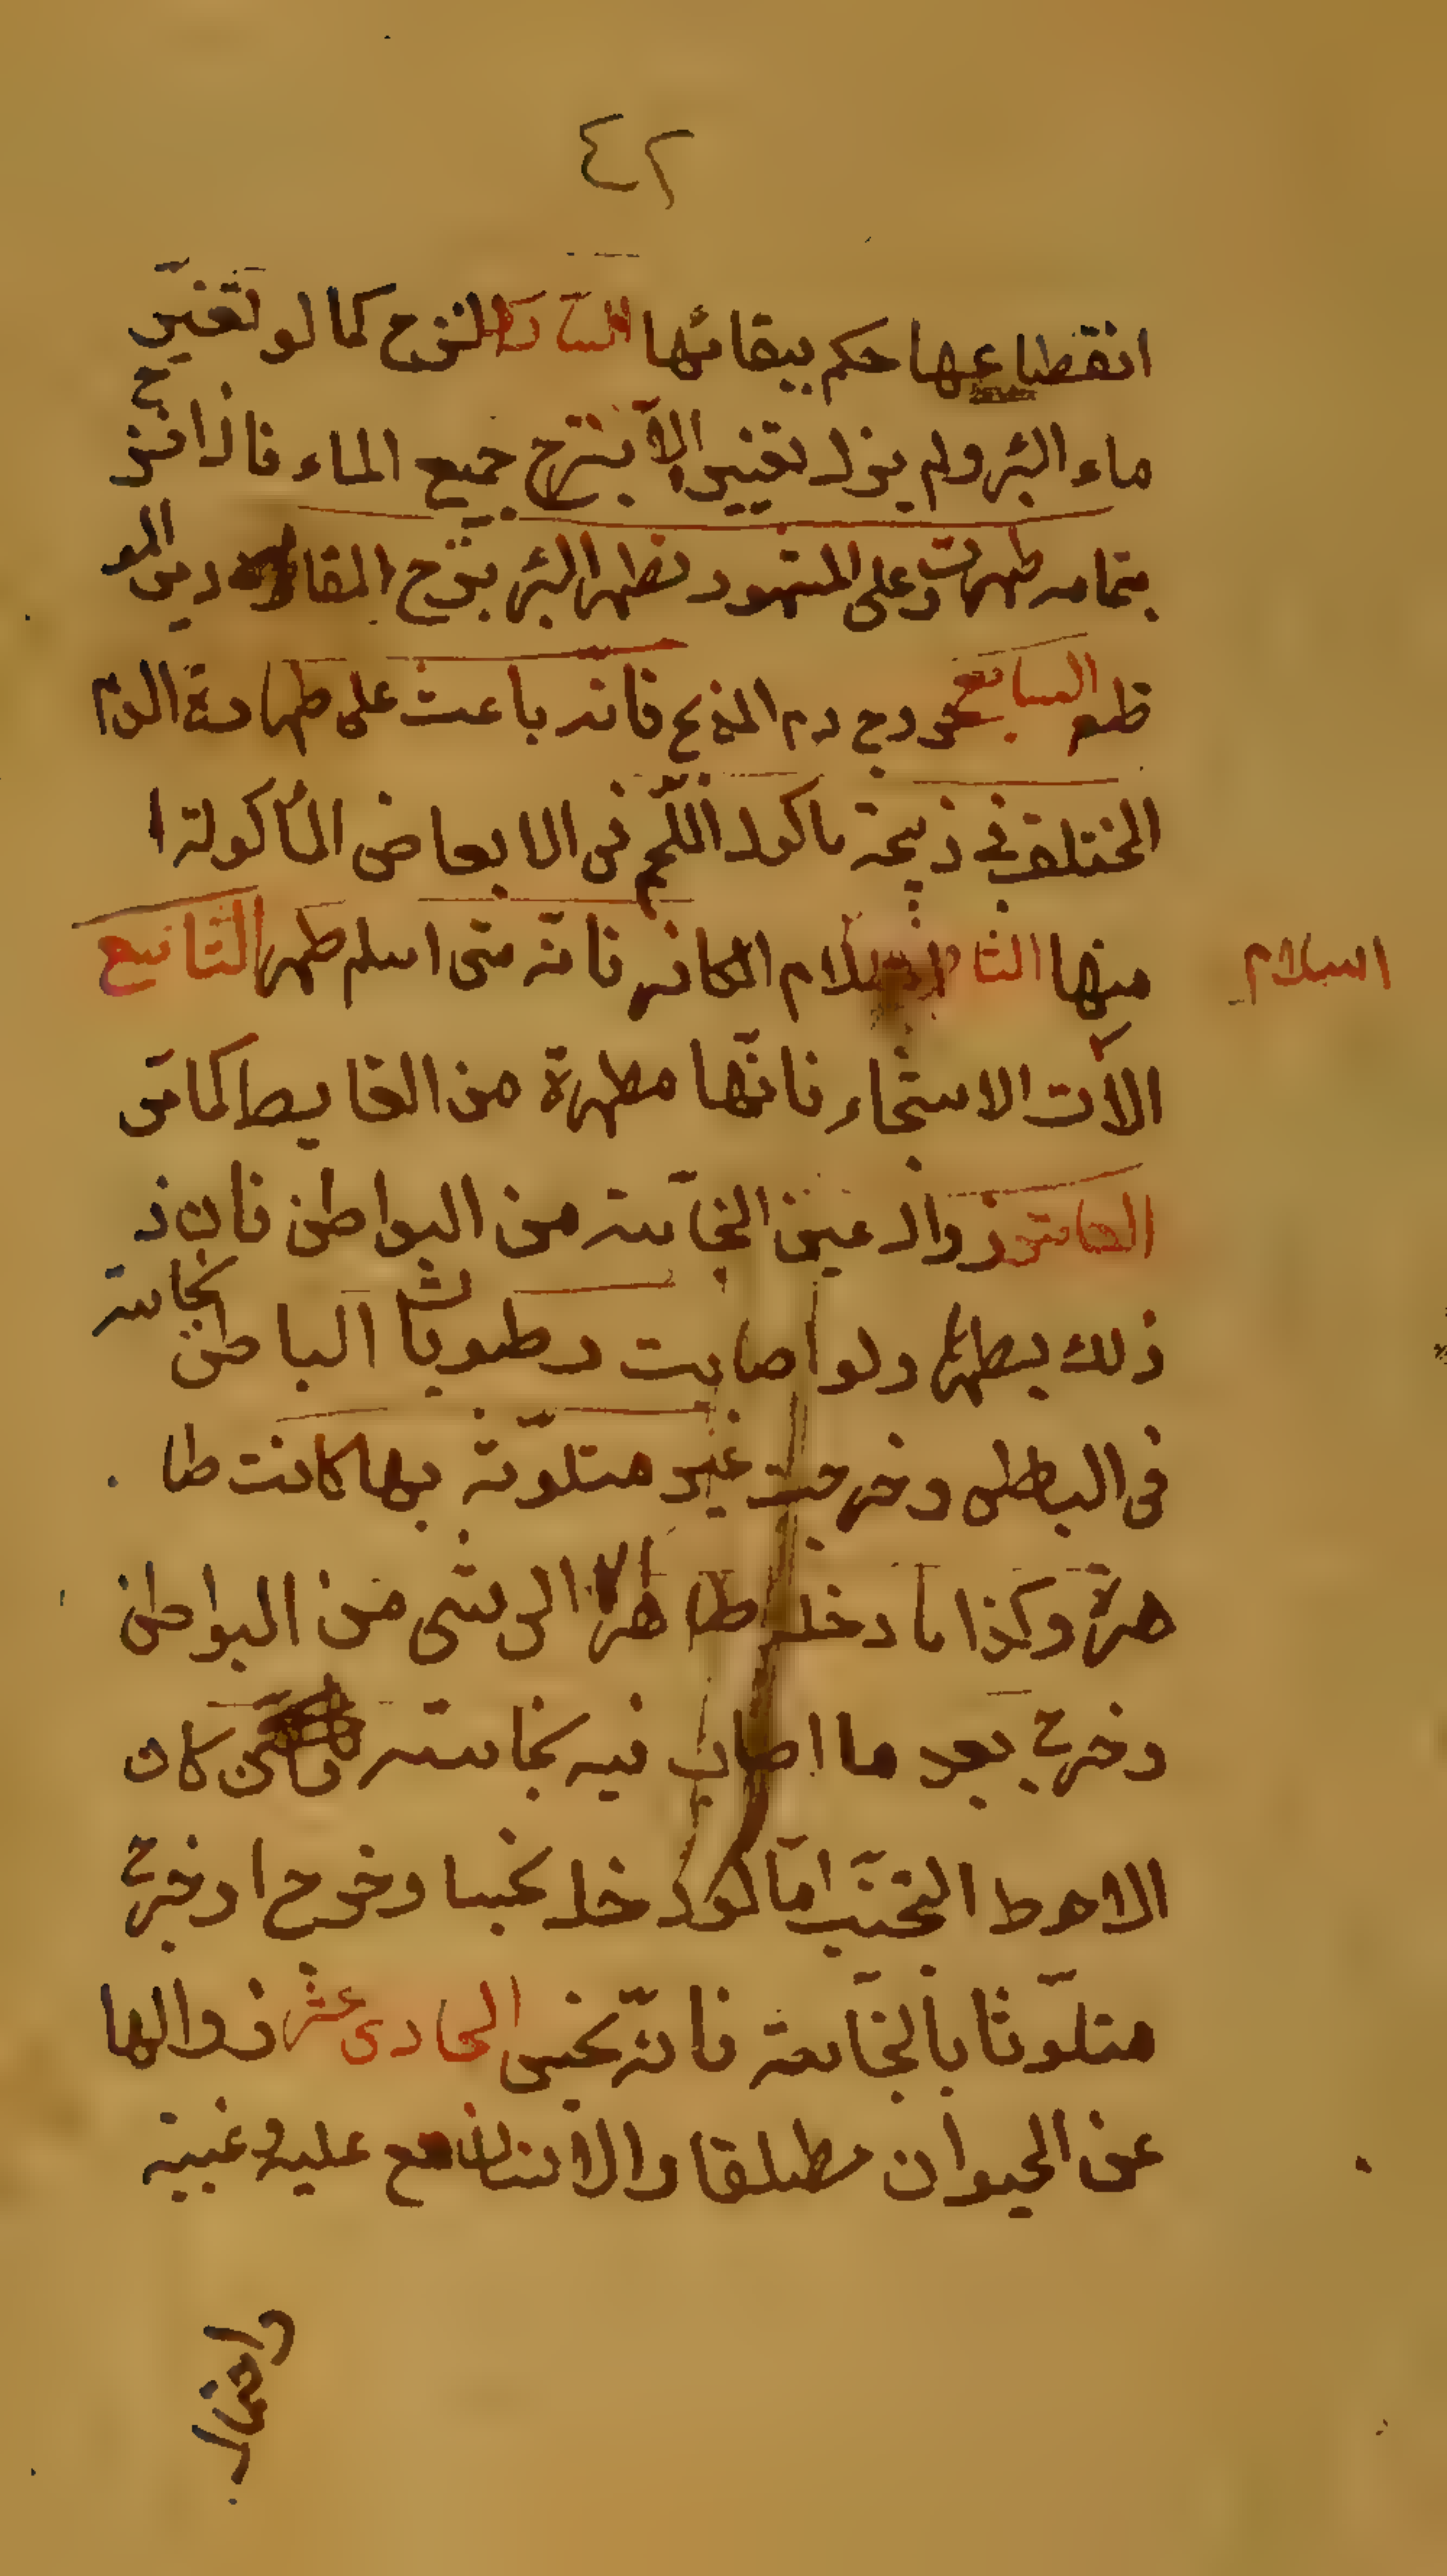 ٤٢
انقطاعها حكم ببقائها السادس النزح كما لو تغيّر
ماء البئر ولم يزل تغيير الّا بنزح جميع الماء فاذا نزح
بتمامه طهرت وعلى المشهور تطهر البئر بنزح المقادير المو
ظفه السابع خروج دم الذبح فانه باعث على طهارة الدم
المختلف في ذبيحة ماكول اللّحم فى الابعاض المأكولة
منها الثامن اسلام الكافر فانّه متى اسلم طهر التاسع
اسلام
الآت الاستنجاء فانّها مطهرة من الغايط كما مّر
العاشر زوال عين النجّاسة من البواطن فان ذ
ذلك يطهرها ولو اصابت رطوبات الباطن نجاسة
فى الباطن وخرجت غير متلوّثة بها كانت طا
هرة وكذا ما دخل طاهرًا الى شى من البواطن
وخرج بعد ما اصاب فيه نجاسته لكن كان
الاحوط التجنّب امّا لو دخل نجسا وخرج او خرج
متلوّثا بالنجّاسة فانّه نجس الحادى عشر زوالها
عن الحيوان مطلقا والانسان مع عليه وغيبة